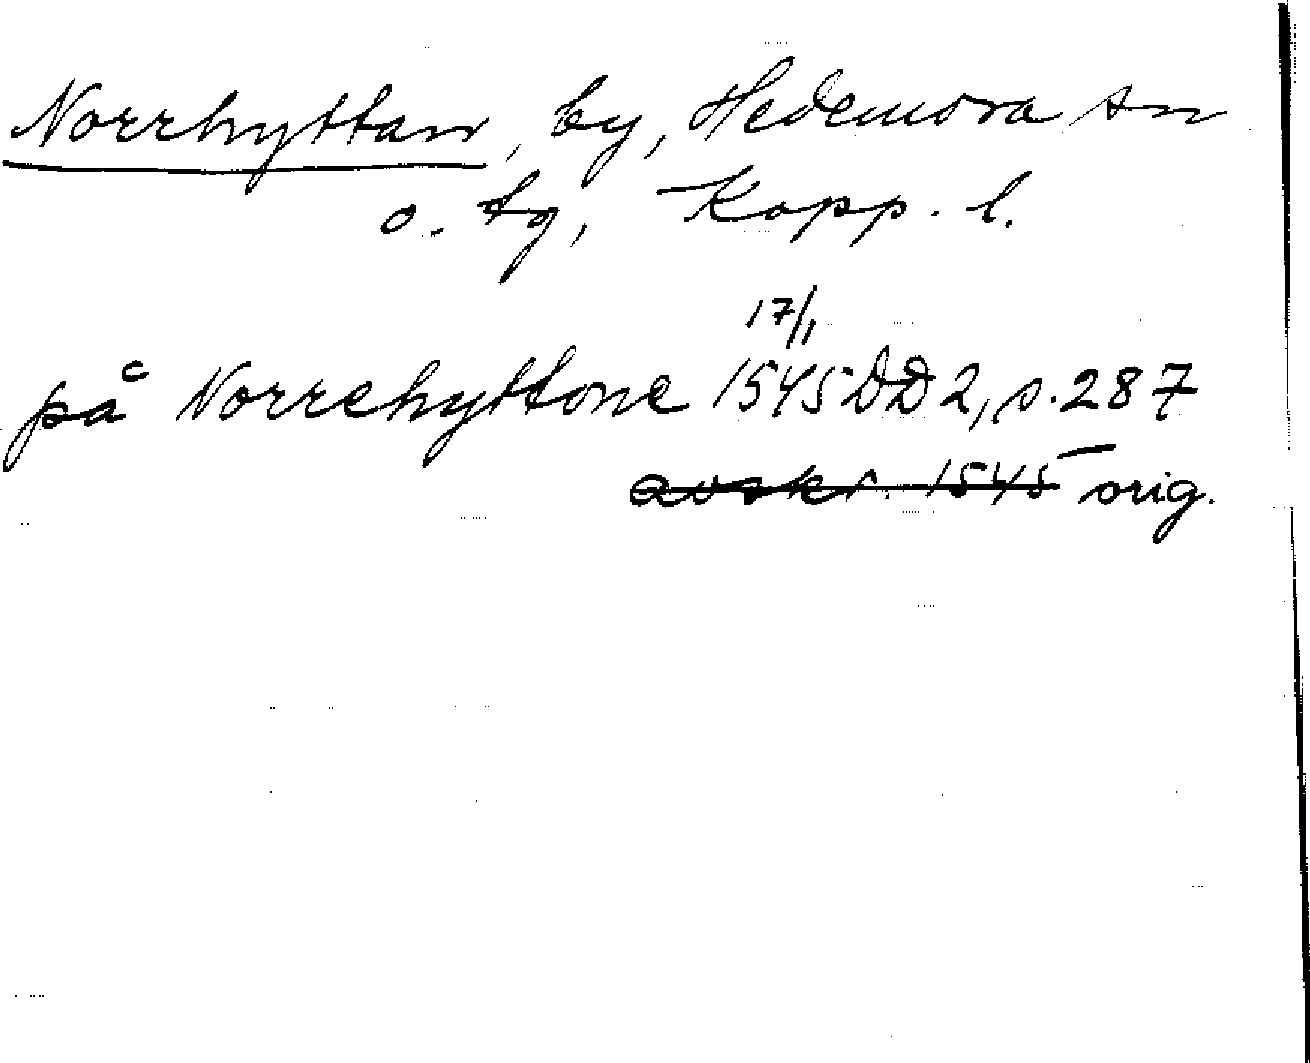 Norrhyttan, by, Hedemora sn
o. tg, Kopp. l.
17/1
på Norrehyttone 1545 DD 2, s. 287
avskr. 1545 orig.